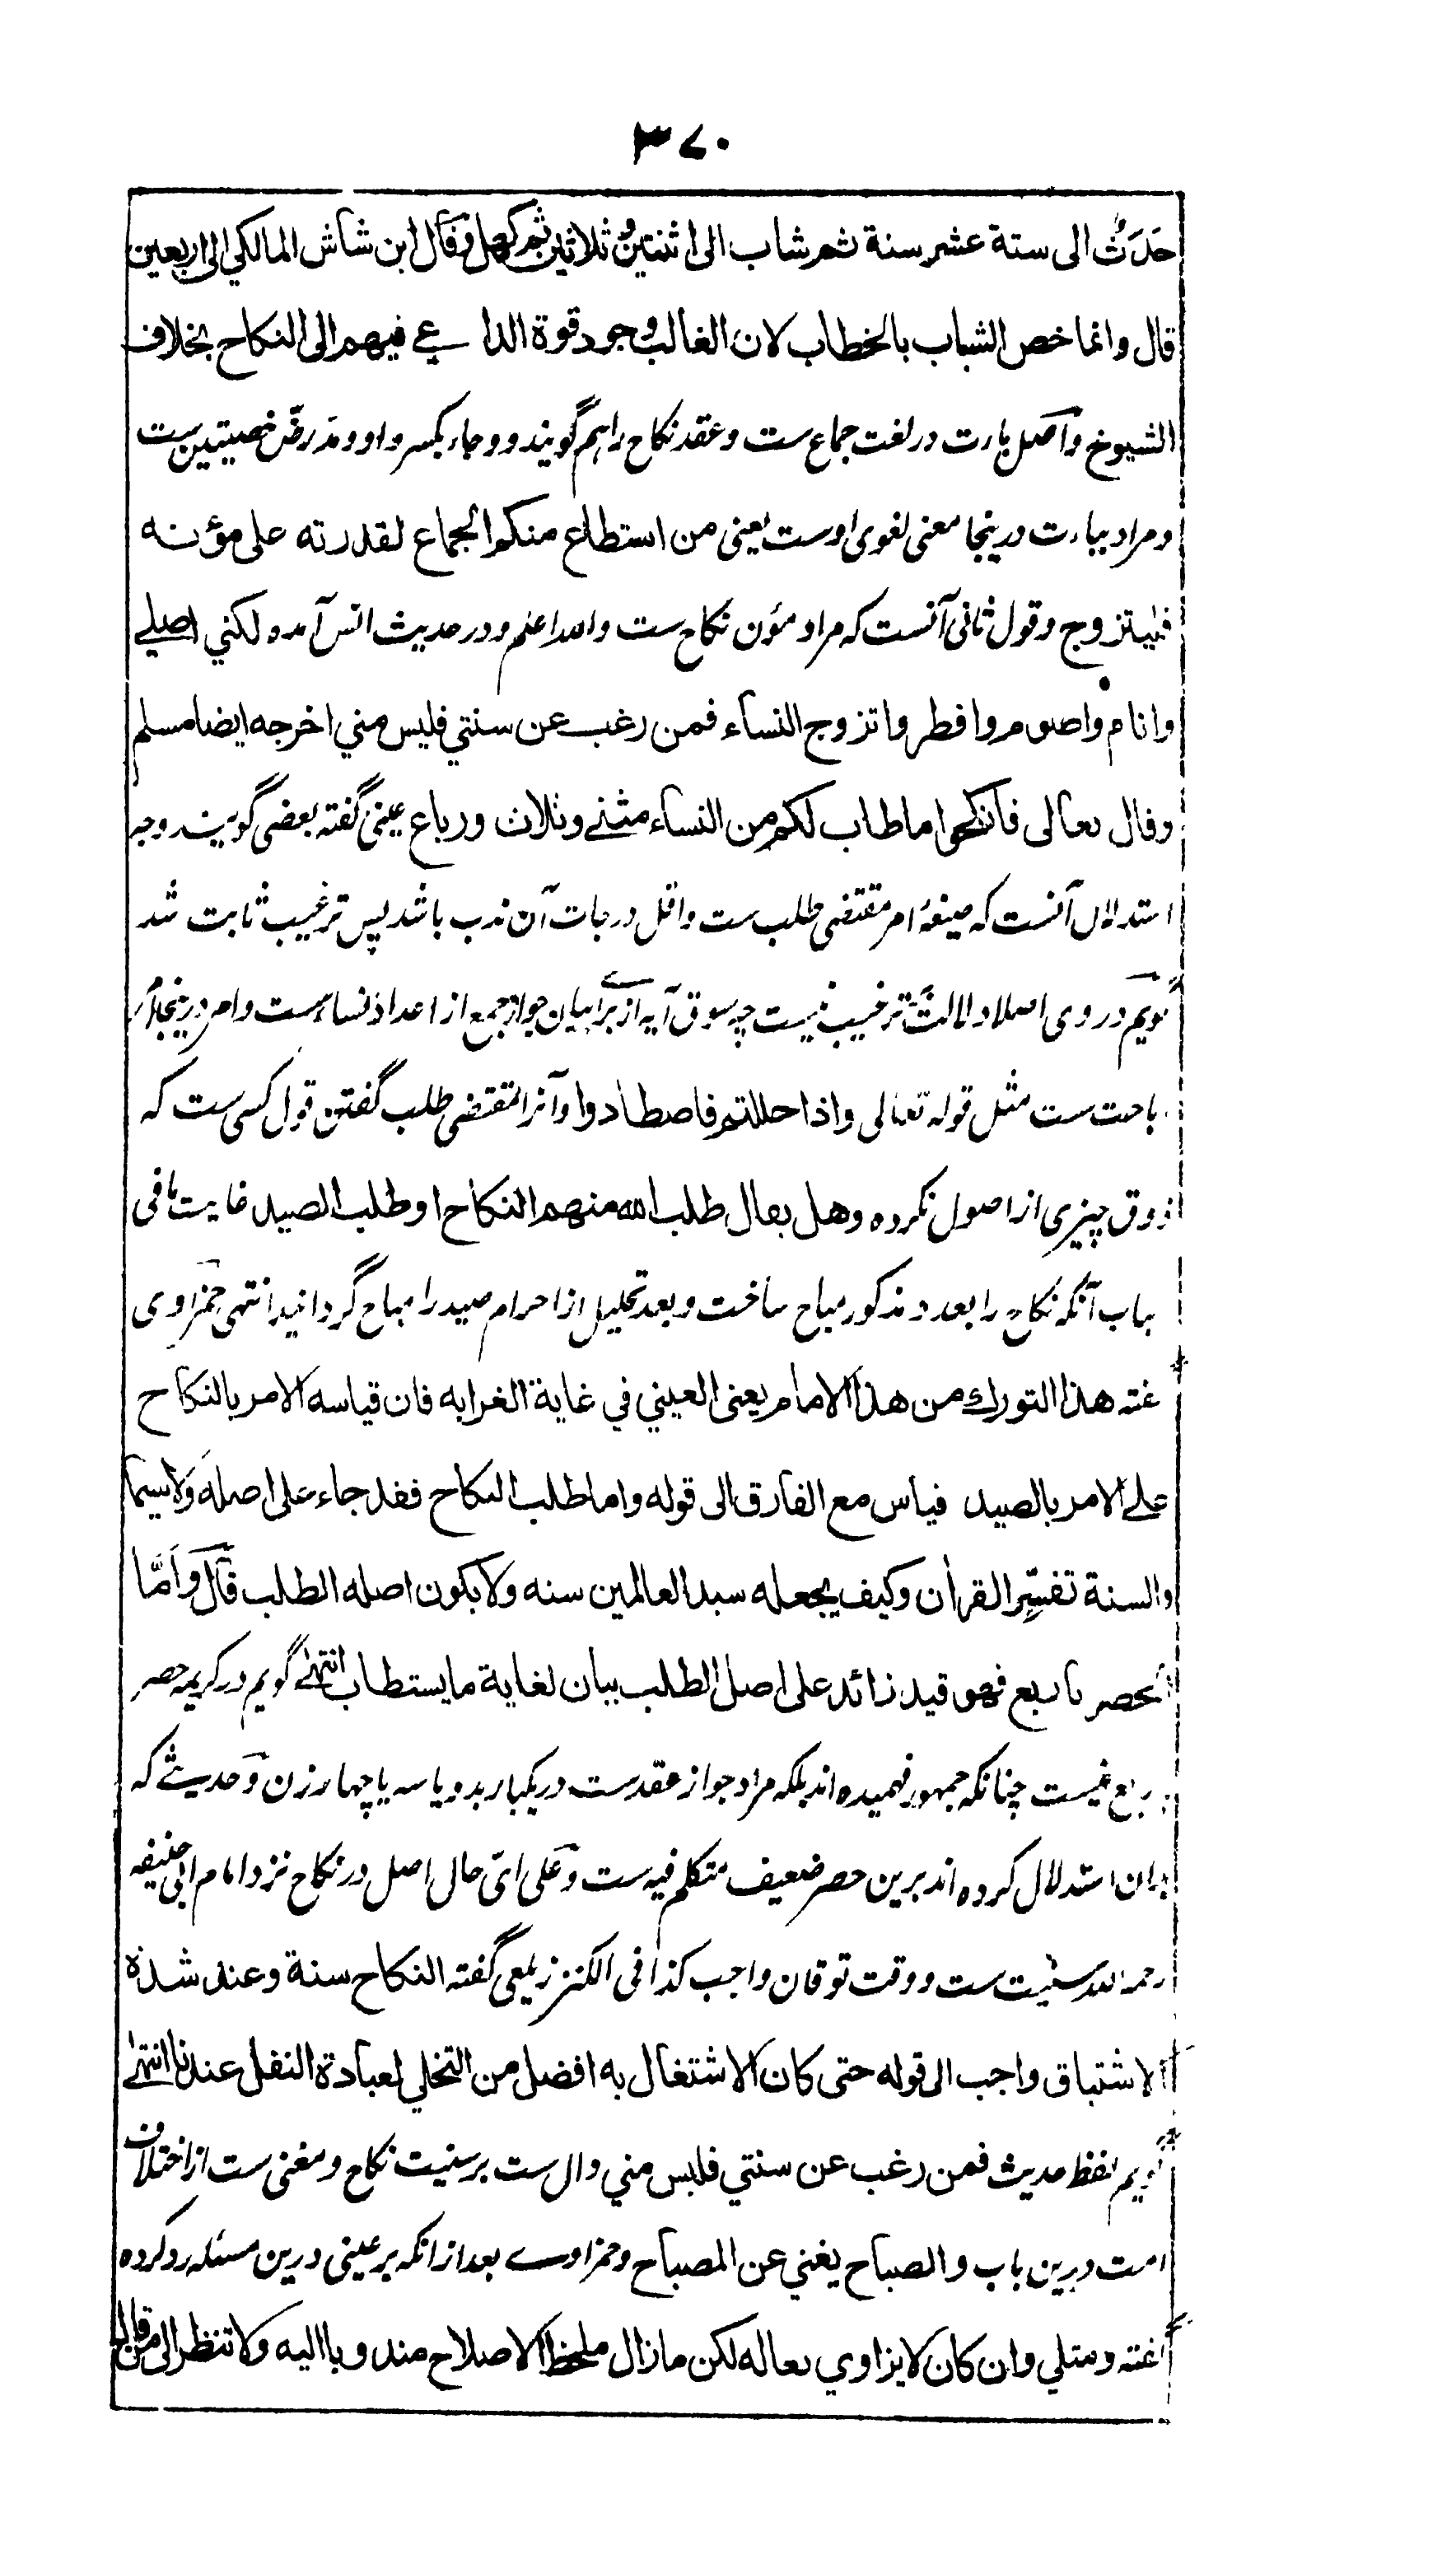 ۳۷۰
حَدَثٌ الى ستة عشر سنة ثم شاب الى اثنتين و ثلاثين ثم كهل وقال ابن شاش المالكي الى اربعين
قال وانما خص الشباب بالخطاب لان الغالب وجود قوة الداعي فيهم الى النكاح بخلاف
الشيوخ واصل باءت در لغت جماع ست وعقد نكاح را هم گويند ووجاء بكسر واو ومد رض خصيتين ست
ومراد بباءت درينجا معنى لغوى اوست يعنى من استطاع منكم الجماع لقدرته على مؤنه
فليتزوج وقول ثانى آنست كه مراد مؤن نكاح ست والله اعلم ودر حديث انس آمده لكني اصلي
وانام واصوم وافطر واتزوج النساء فمن رغب عن سنتي فليس مني اخرجه ايضا مسلم
وقال تعالى فانكحوا ما طاب لكم من النساء مثنى وثلاث ورباع عينى گفته بعضى گويند وجه
استدلال آنست كه صيغۀ امر مقتضى طلب ست واقل درجات آن ندب باشد پس ترغيب ثابت شد
گويم در وى اصلا دلالت ترغيب نيست چه سوق آيه از براے بيان جواز جمع از اعداد نساء ست وامر درينجا از
باحت ست مثل قوله تعالى واذا حللتم فاصطادوا وآنرا مقتضى طلب گفتن قول كسى ست كه
ذوق چيزى از اصول نكرده وهل يقال طلب الله منهم النكاح او طلب الصيد غايت ما فى
باب آنكه نكاح را بعدد مذكور مباح ساخت وبعد تحليل از احرام صيد را مباح گردانيد انتهى حمزاوى
گفته هذا التورك من هذا الامام يعنى العيني في غاية الغرابه فان قياسه الامر بالنكاح
على الامر بالصيد قياس مع الفارق الى قوله واما طلب النكاح فقد جاء على اصله ولا سيما
والسنة تفسِّر القرأن وكيف يجعله سيد العالمين سنه ولا يكون اصله الطلب قال وَاَمَّا
الحصر باربع فهو قيد زائد على اصل الطلب بيان لغاية ما يستطاب انتهى گويم در كريمه حصر
بر ربع نيست چنانكه جمهور فهميده اند بلكه مراد جواز عقدست در يكبار بدو يا سه يا چهار زن وحديثے كه
بدان استدلال كرده اند برين حصر ضعيف متكلم فيه ست وعلى اىّ حال اصل در نكاح نزد امام ابى حنيفه
رحمه الله سنيت ست ووقت توقان واجب كذا فى الكنز زيلعى گفته النكاح سنة وعند شدة
الاشتياق واجب الى قوله حتى كان الاشتغال به افضل من التخلي لعبادة النفل عندنا انتهى
گويم لفظ حديث فمن رغب عن سنتي فليس مني دال ست بر سنيت نكاح ومغنى ست از اختلاف
امت درين باب والصباح يغني عن المصباح وحمزاوے بعد ازانكه بر عينى درين مسئله رد كرده
گفته ومثلي وان كان لا يزاوي نعاله لكن مازال ملحظ الاصلاح مندوبا اليه ولا تنظر الى من قال